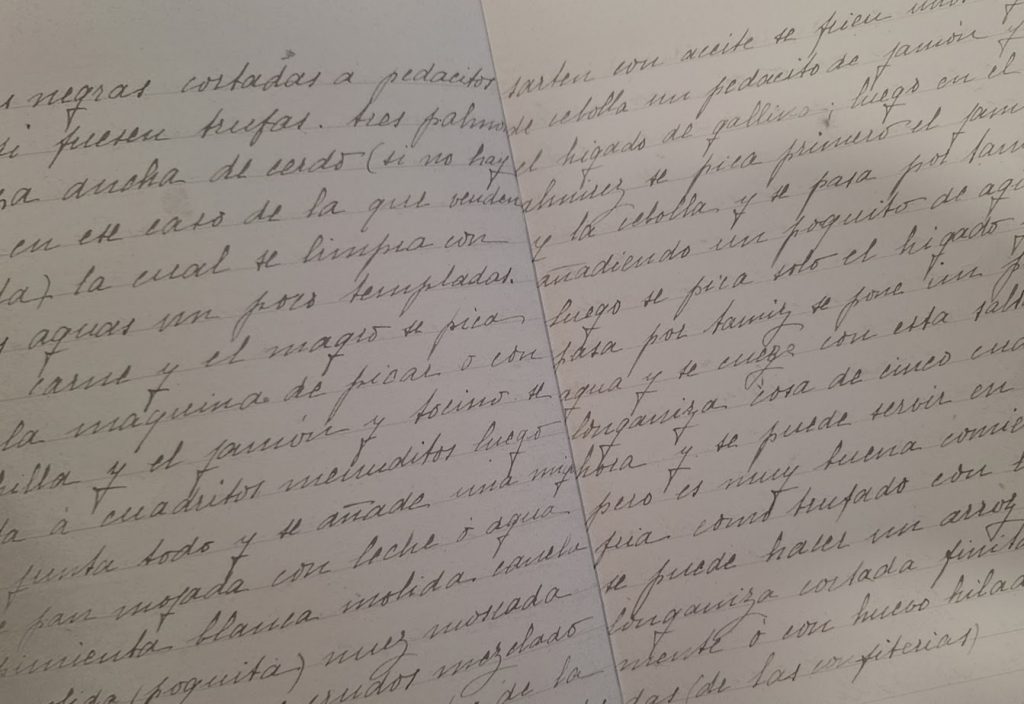 negras cortadas a pedacitos
si fuesen trufas. tres palmos
ancha de cerdo (si no hay
en ese caso de la que venden
la cual se limpia con
aguas un poco templadas.
carne y el magro se pica
la maquina de picar o con
y el jamón y tocino se
a cuadritos menuditos luego
junta todo y se añade una
pan mojada con leche ó agua
pimienta blanca molida canela
(poquita) nuez moscada
crudos mezclado
de la
sarten con aceite se frien
de cebolla un pedacito de jamón y
el higado de gallina; luego en el
almirez se pica primero el
y la cebolla y se pasa por
añadiendo un poquito de
luego se pica solo el higado
pasa por tamiz se pone un
agua y se cueze con esta
longaniza cosa de cinco
hora y se puede servir en
pero es muy buena
fria como trufado con
se puede hacer un arroz
longaniza cortada finita
mente ó con huevo
(de las confiterias)